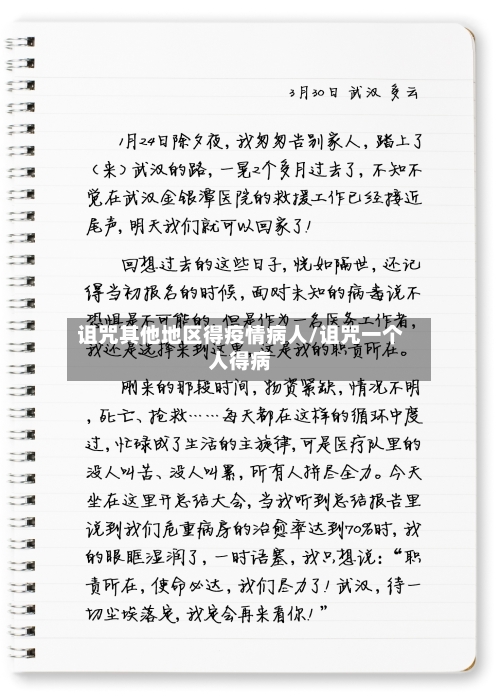 3月30日 武汉 多云
1月24日除夕夜，我匆匆告别家人，踏上了
（来）武汉的路，一晃2个多月过去了，不知不
觉在武汉金银潭医院的救援工作已经接近
尾声，明天我们就可以回家了！
回想过去的这些日子，恍如隔世，还记
得当初报名的时候，面对未知的病毒说不
恐惧是不可能的，但是作为一名医务工作者，
诅咒其他地区得疫情病人/诅咒一个
我还是选择来到这里，这是我的职责所在。
人得病
刚来的那段时间，物资紧缺，情况不明
，死亡、抢救……每天都在这样的循环中度
过，忙碌成了生活的主旋律，可是医疗队里的
没人叫苦、没人叫累，所有人拼尽全力。今天
坐在这里开总结大会，当我听到总结报告里
说到我们危重病房的治愈率达到70%时，我
的眼眶湿润了，一时语塞，我只想说：“职
责所在，使命必达，我们尽力了！武汉，待一
切尘埃落定，我定会再来看你！”